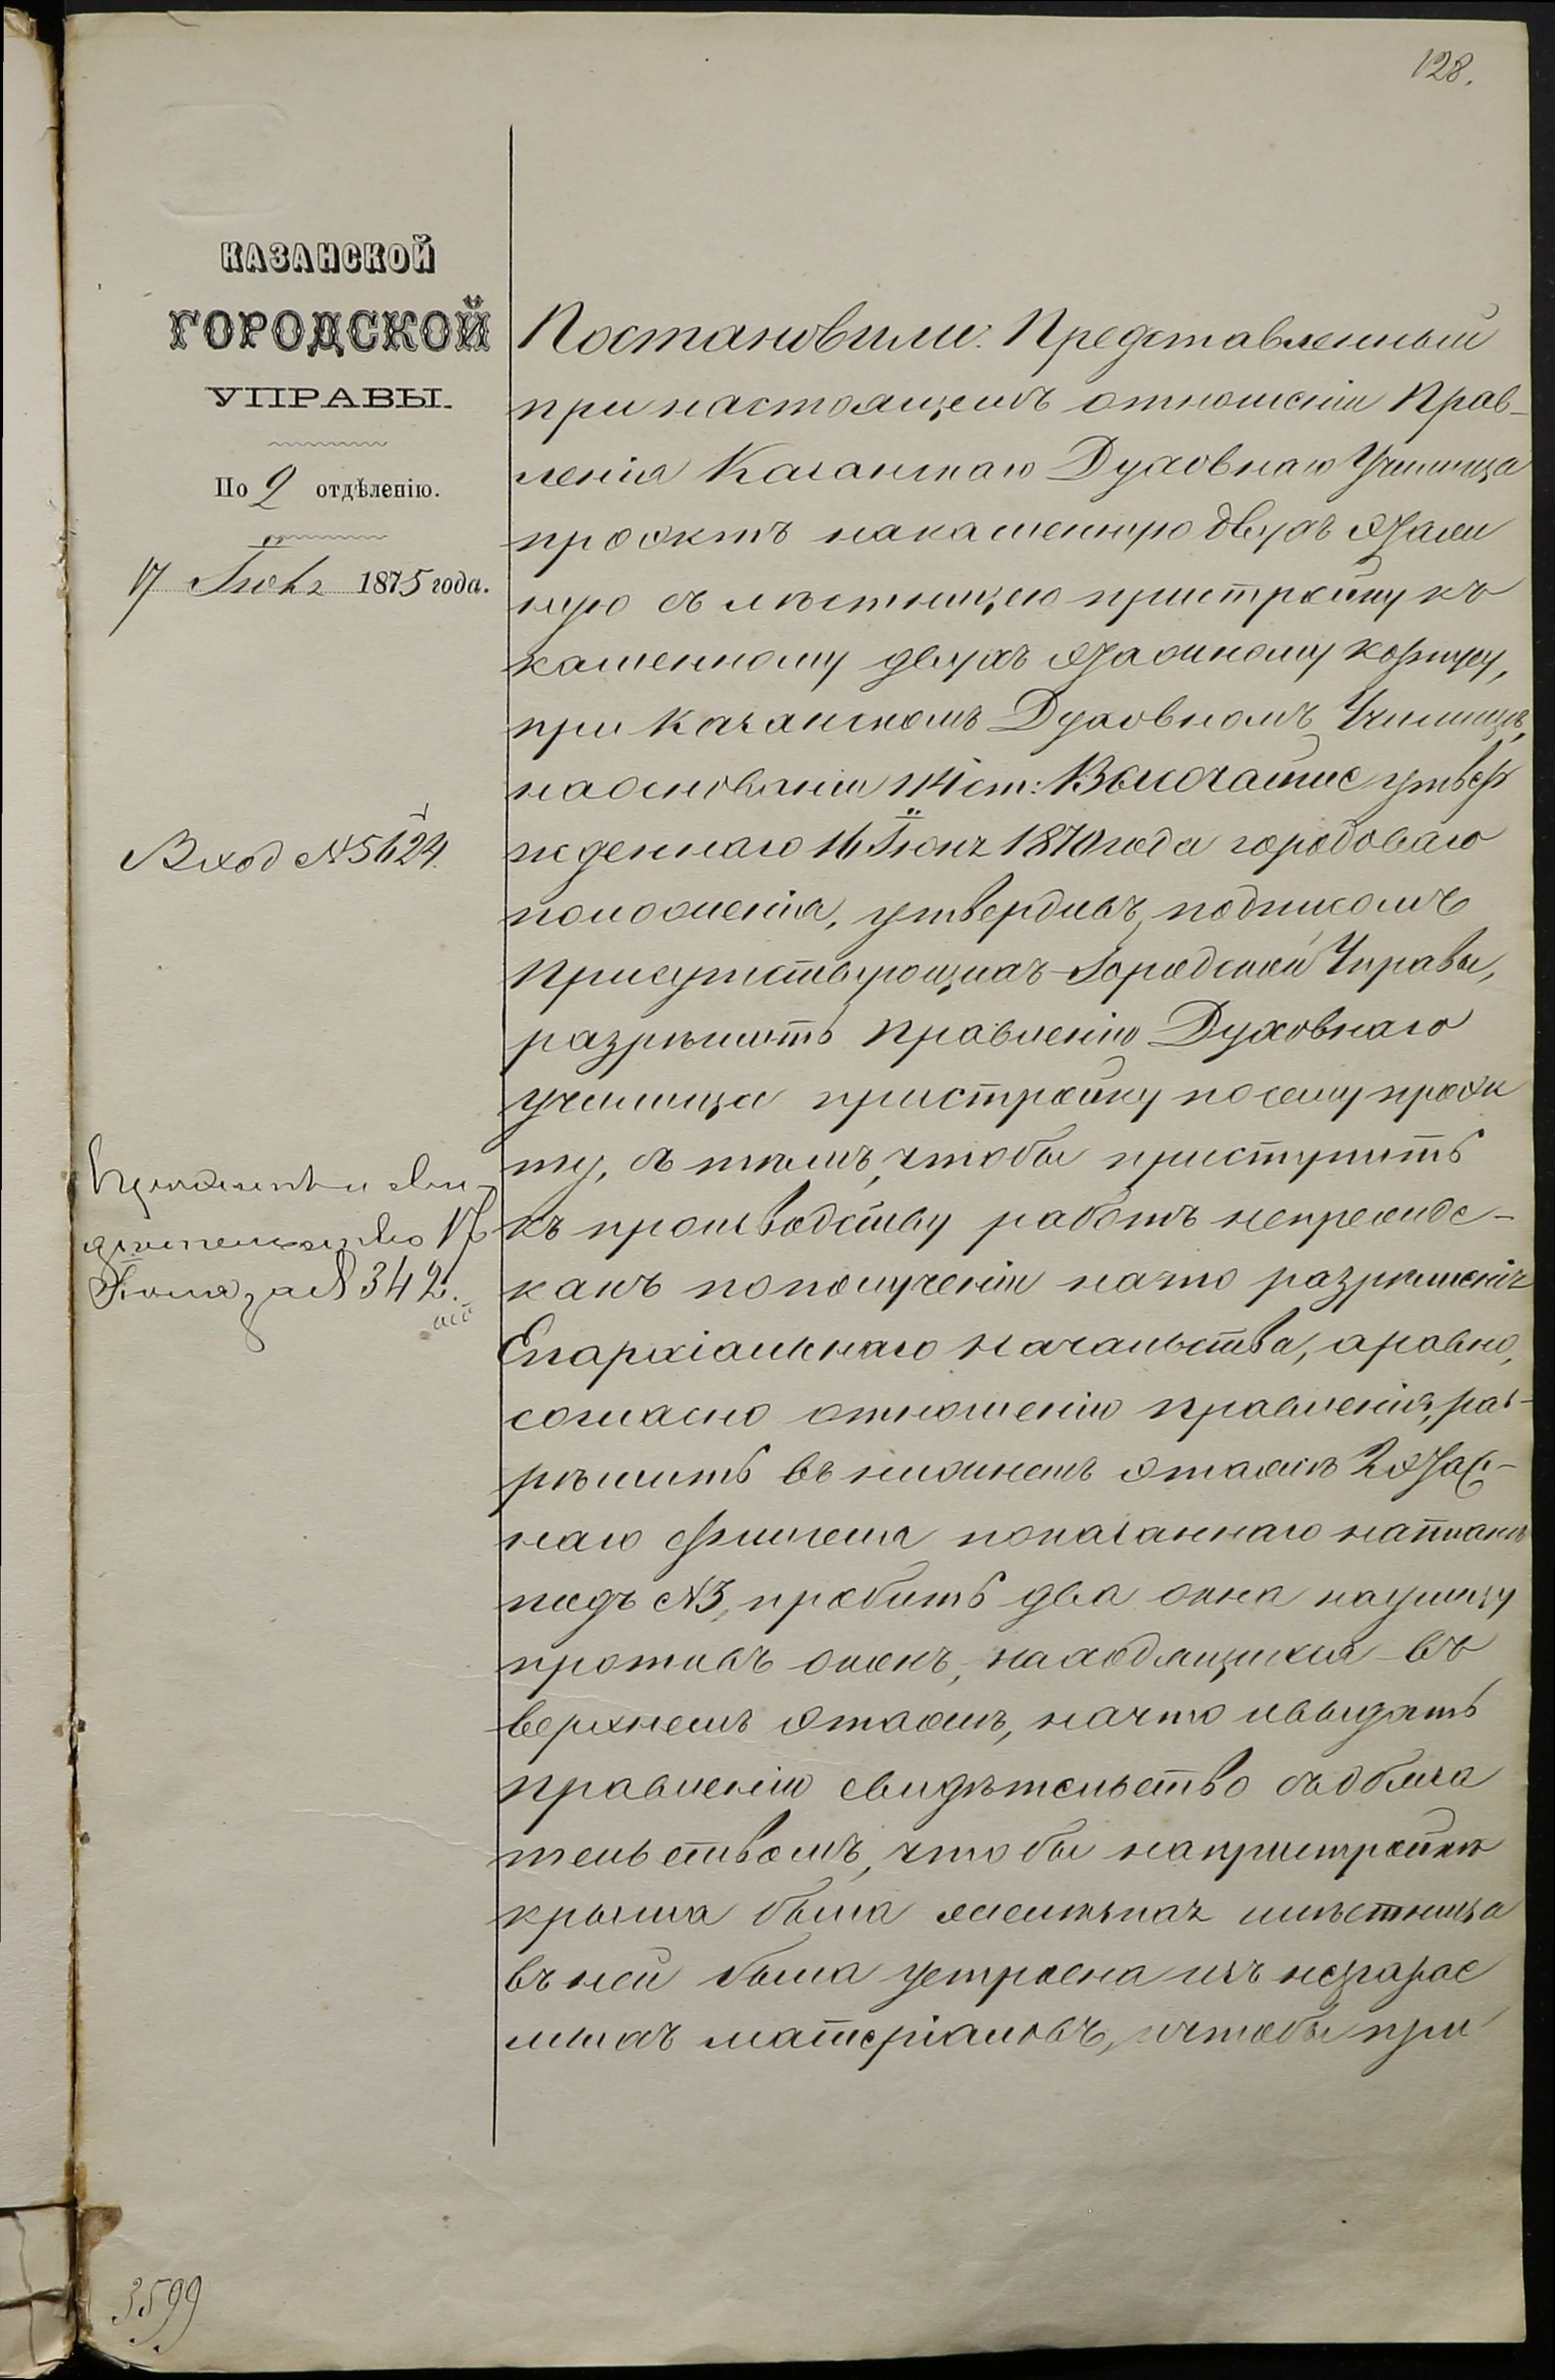 128.
КАЗАНСКОЙ
ГОРОДСКОЙ
УПРАВЫ.
По 2 отдѣленію.
17 Іюня 1875 года.
Вход №5624.
свидѣтельство 17
Іюня за № 342.
Постановили: Представленный
при настоящемъ отношеніи Прав-
ленія Казанскаго Духовнаго Училища
проэктъ на каменную двухъ этаж
ную съ лѣстницею пристройку къ
каменному двухъ этажному корпусу,
при Казанскомъ Духовномъ Училищѣ,
на основаніи 114 ст: Высочайше утвер
жденнаго 16 Іюня 1870 года городоваго
положенія, утвердивъ подписомъ
Присутствующихъ Городской Управы,
разрѣшить Правленію Духовнаго
училища пристройку по сему проэк
ту, съ тѣмъ, чтобы приступить
къ производству работъ не прежде-
какъ по полученіи на то разрѣшенія
Епархіальнаго Начальства, а равно,
согласно отношенію правленія, раз-
рѣшить въ нижнемъ этажѣ 2 этаж-
наго флигеля показаннаго на планѣ
подъ №3, пробить два окна на улицу
противъ оконъ, находящихся въ
верхнемъ этажѣ, на что и выдать
правленію свидѣтельство съ обяза
тельствомъ, чтобы на пристройкѣ
крыша была желѣзная и лѣстница
въ ней была устроена изъ несгарае
мыхъ матеріаловъ, и чтобы при
3599